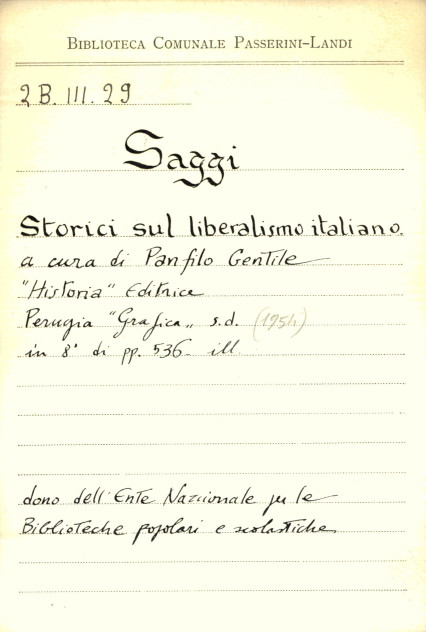 BIBLIOTECA COMUNALE PASSERINI-LANDI
2B.III.29
Saggi
Storici sul liberalismo italiano
a cura di Panfilo Gentile
"Historia" Editrice
Perugia "Grafica" s.d. (1954)
in 8° di pp. 536- ill
dono dell'Ente Nazionale per le
Biblioteche popolari e scolastiche